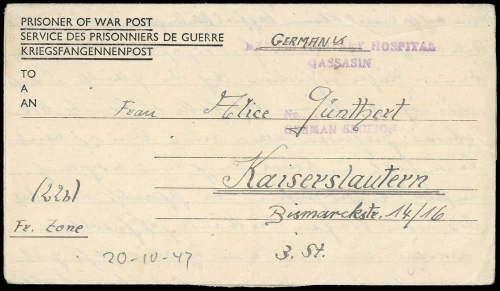 PRISONER OF WAR POST
SERVICE DES PRISONNIERS DE GUERRE
KRIEGSFANGENNENPOST
GERMANY
HOSPITAL
QASSASIN
TO
A
AN
Frau Alice Günthert
No.
GERMAN SECTION
Kaiserslautern
(22b)
Bismarckstr. 14/16
Fr. Zone
3. St.
20-IV-47